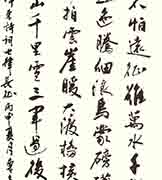 不怕遠征難萬水千
逶迤騰細浪烏蒙磅礴
拍雲崖暖大渡橋橫
山千里雪三軍過後
詩詞七律長征丙申夏月